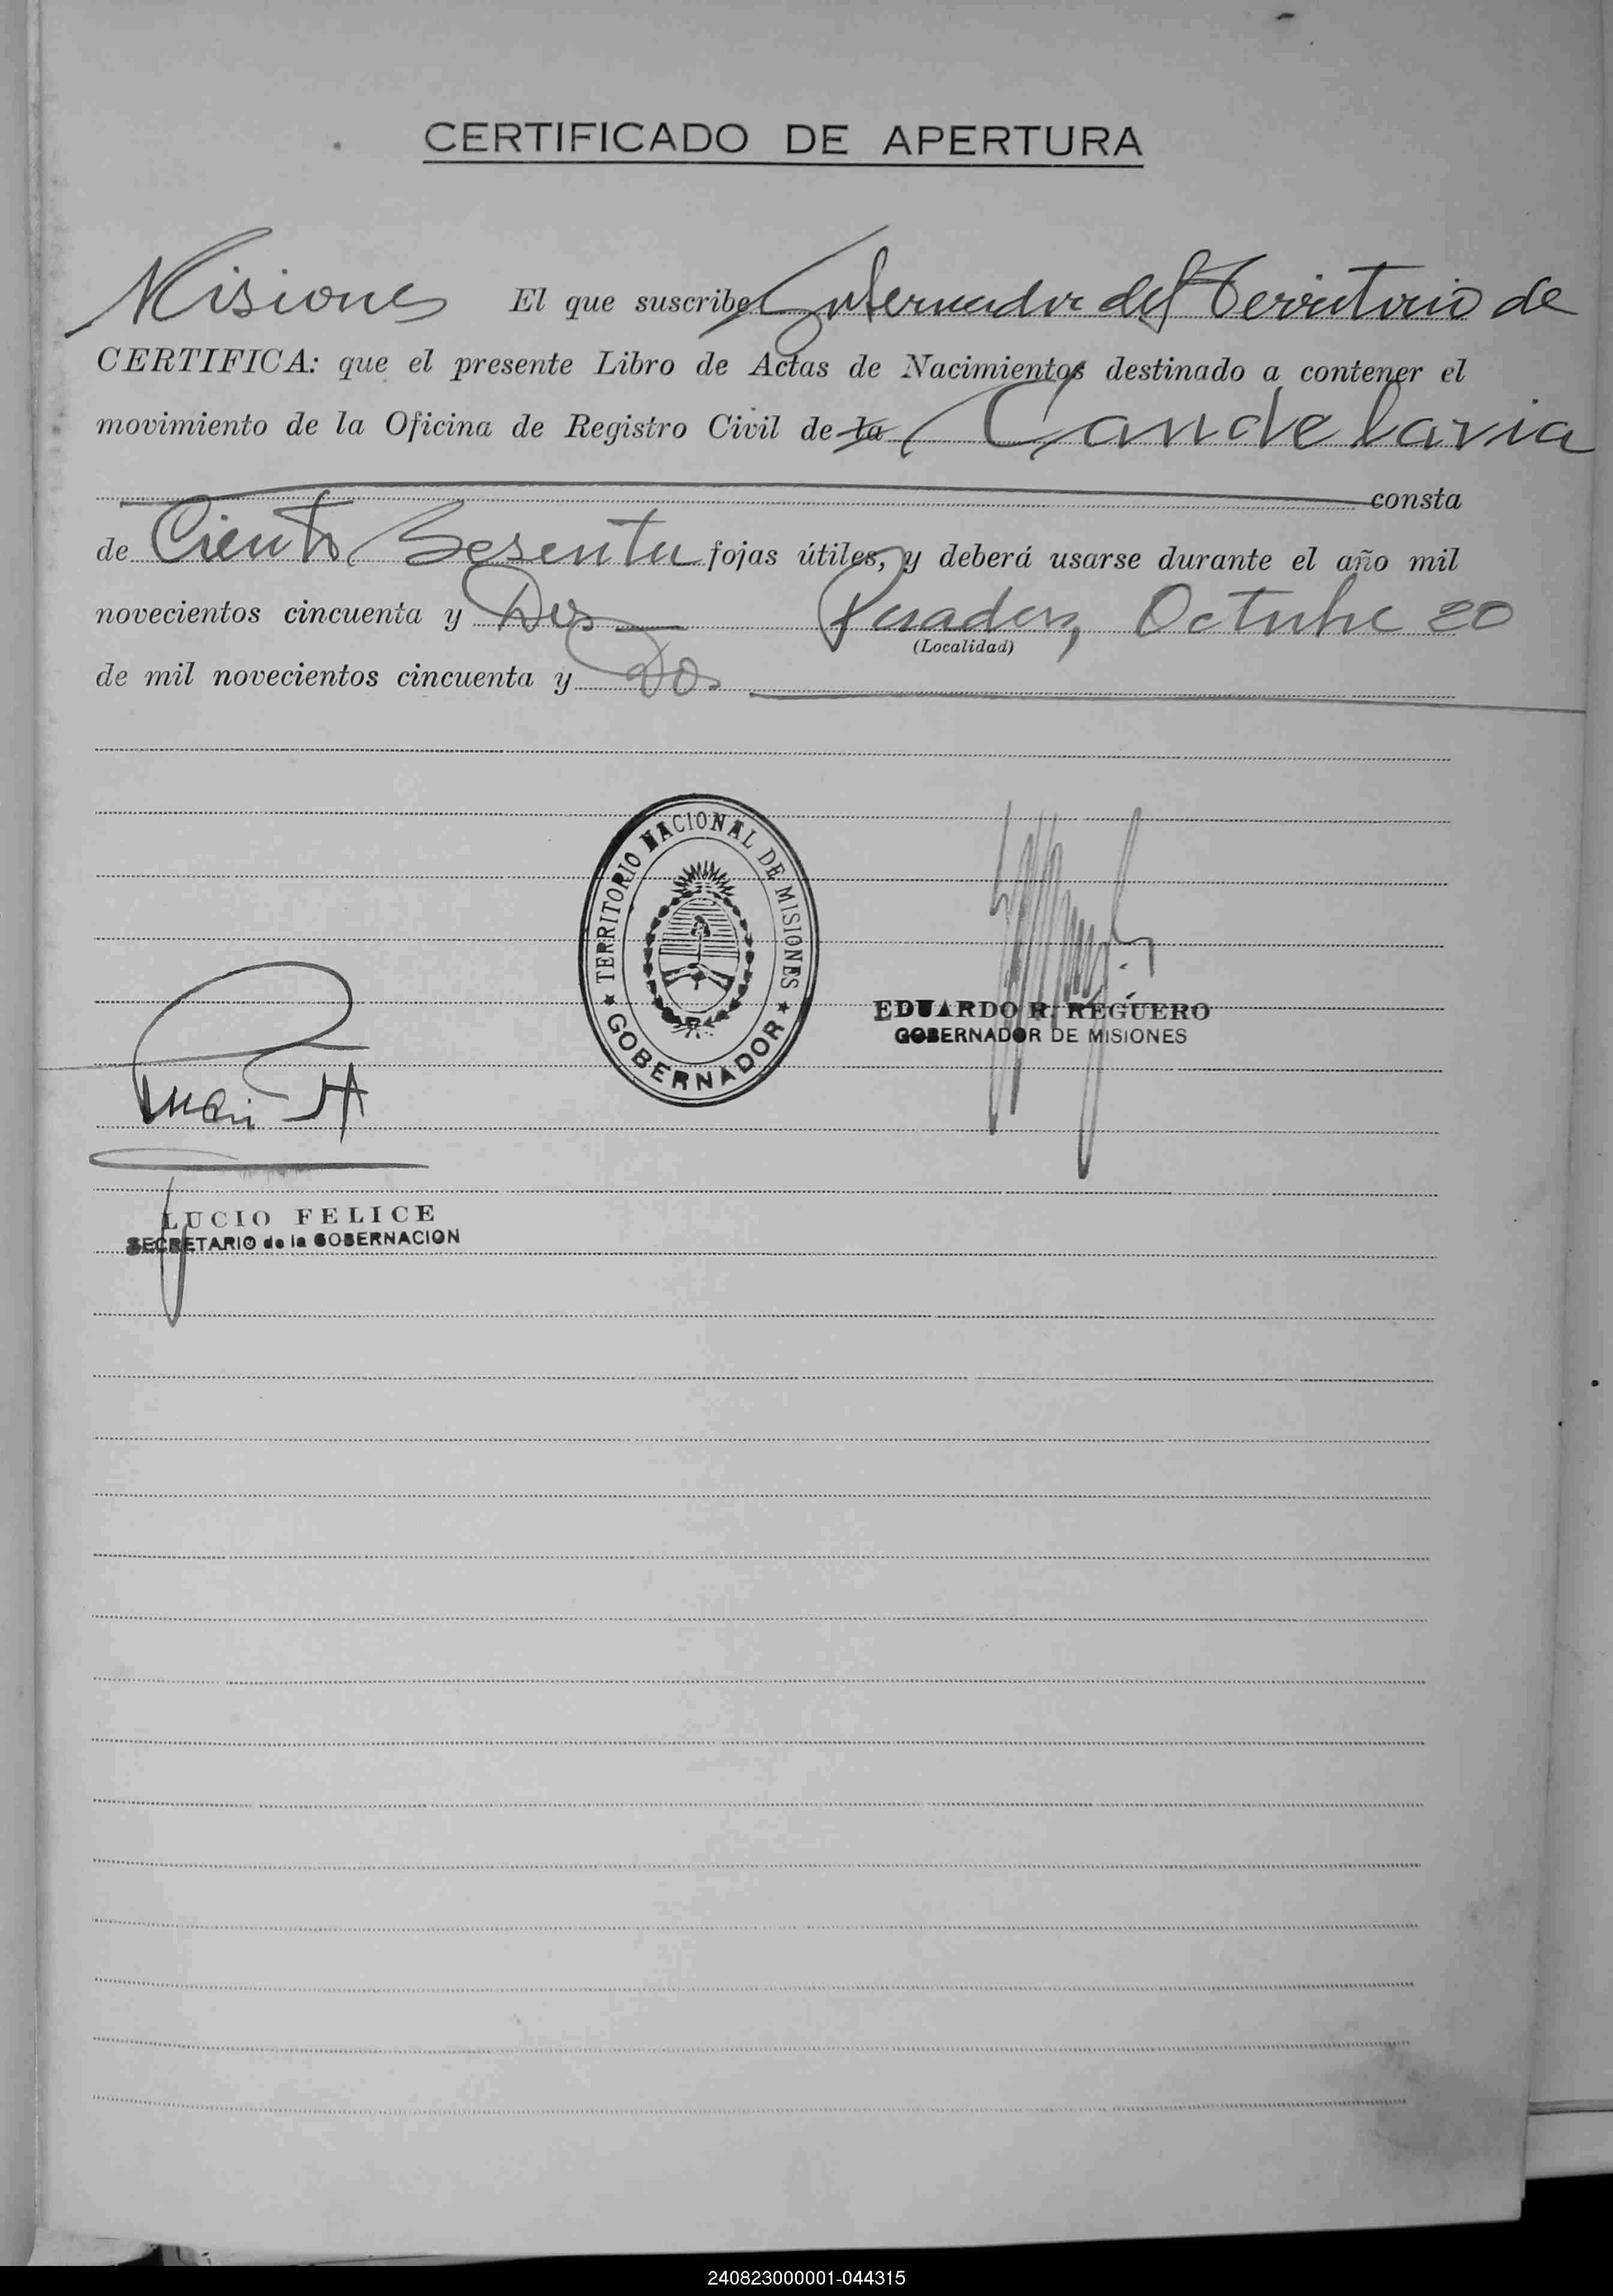 CERTIFICADO DE APERTURA
Misiones El que suscribe Gobernador del Territorio de
CERTIFICA: que el presente Libro de Actas de Nacimientos destinado a contener el
movimiento de la Oficina de Registro Civil de la Candelaria
consta
de Ciento Sesenta fojas útiles, y deberá usarse durante el año mil
novecientos cincuenta y Dos Posadas, Octubre 20
(Localidad)
de mil novecientos cincuenta y Dos
TERRITORIO NACIONAL DE MISIONES
GOBERNADOR
EDUARDO R. REGUERO
GOBERNADOR DE MISIONES
LUCIO FELICE
SECRETARIO de la GOBERNACION
240823000001-044315